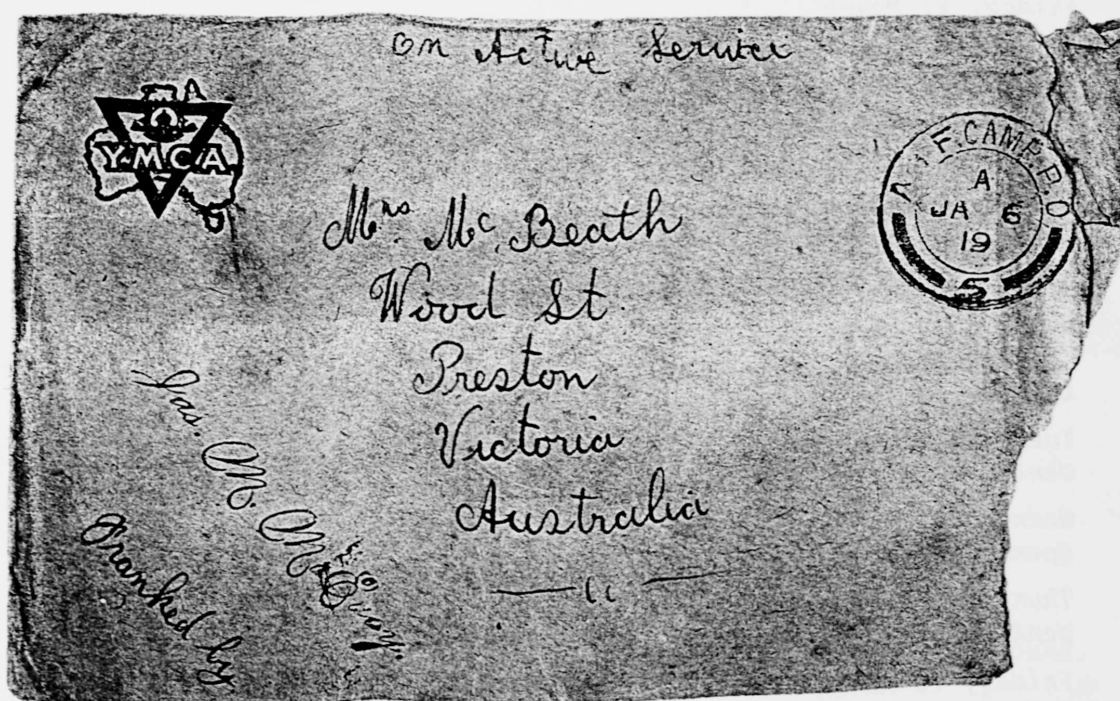 On Active Service
Y.M.C.A.
A.I.F. CAMP. P.O.
A
JA 6
19
5
Mrs. Mc. Beath
Wood St.
Preston
Victoria
Australia
Jas. M. McEvoy.
Franked by